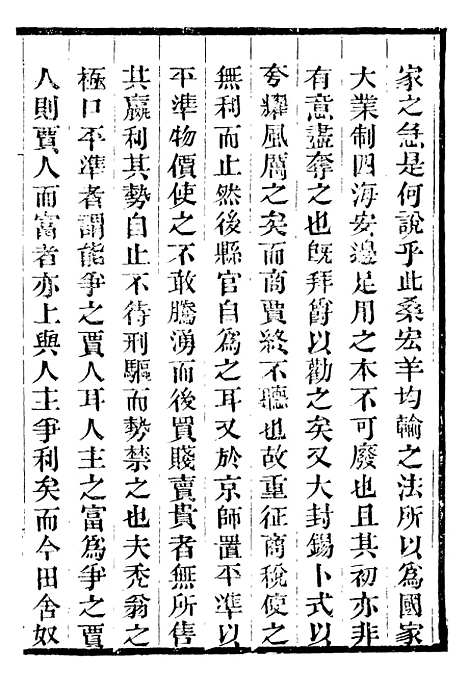 家之急是何說乎此桑宏羊均輸之法所以爲國家
大業制四海安邊足用之本不可廢也且其初亦非
有意盡奪之也旣拜爵以勸之矣又大封錫卜式以
夸耀風厲之矣而商賈終不聽也故重征商稅使之
無利而止然後縣官自爲之耳又於京師置平準以
平準物價使之不敢騰湧而後買賤賣貴者無所售
其贏利其勢自止不待刑驅而勢禁之也夫禿翁之
極口平準者謂能爭之賈人耳人主之富爲爭之賈
人則賈人而富者亦上與人主爭利矣而今田舍奴